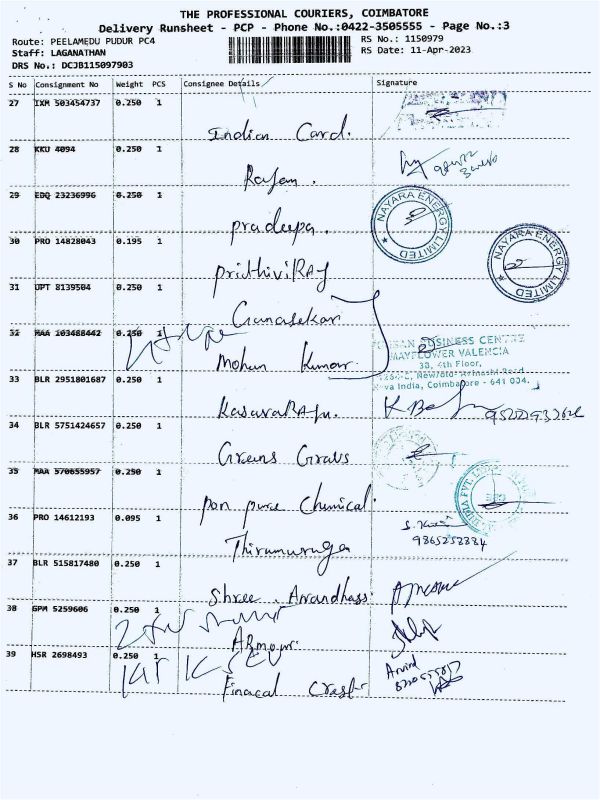 THE PROFESSIONAL COURIERS, COIMBATORE
Delivery Runsheet - PCP - Phone No.:0422-3505555 - Page No.:3
Route: PEELAMEDU PUDUR PC4
RS No.: 1150979
Staff: LAGANATHAN
RS Date: 11-Apr-2023
DRS No.: DCJB115097903
S No Consignment No Weight PCS Consignee Details Signature
27 IXM 503454737 0.250 1
Indian Card.
28 KKU 4094 0.250 1
Rajan.
29 EDQ 23236996 0.250 1
pradeepa.
NAYARA ENERGY LIMITED
30 PRO 14828043 0.195 1
prithiviRAJ
NAYARA ENERGY LIMITED
31 OPT 8139504 0.250 1
Gunasekari
32 MAA 103488442 0.250 1
Mohan Kumar
BUSINESS CENTRE
MAYFLOWER VALENCIA
4th Floor,
India, Coimbatore - 641 004.
33 BLR 2951801687 0.250 1
34 BLR 5751424657 0.250 1
Greens
35 MAA 570655957 0.250 1
pon pure Chemical.
36 PRO 14612193 0.095 1
Thirumuruga
37 BLR 515817480 0.250 1
Shree Anandhass
38 GPM 5259606 0.250 1
Armour
39 HSR 2698493 0.250 1
Arvind